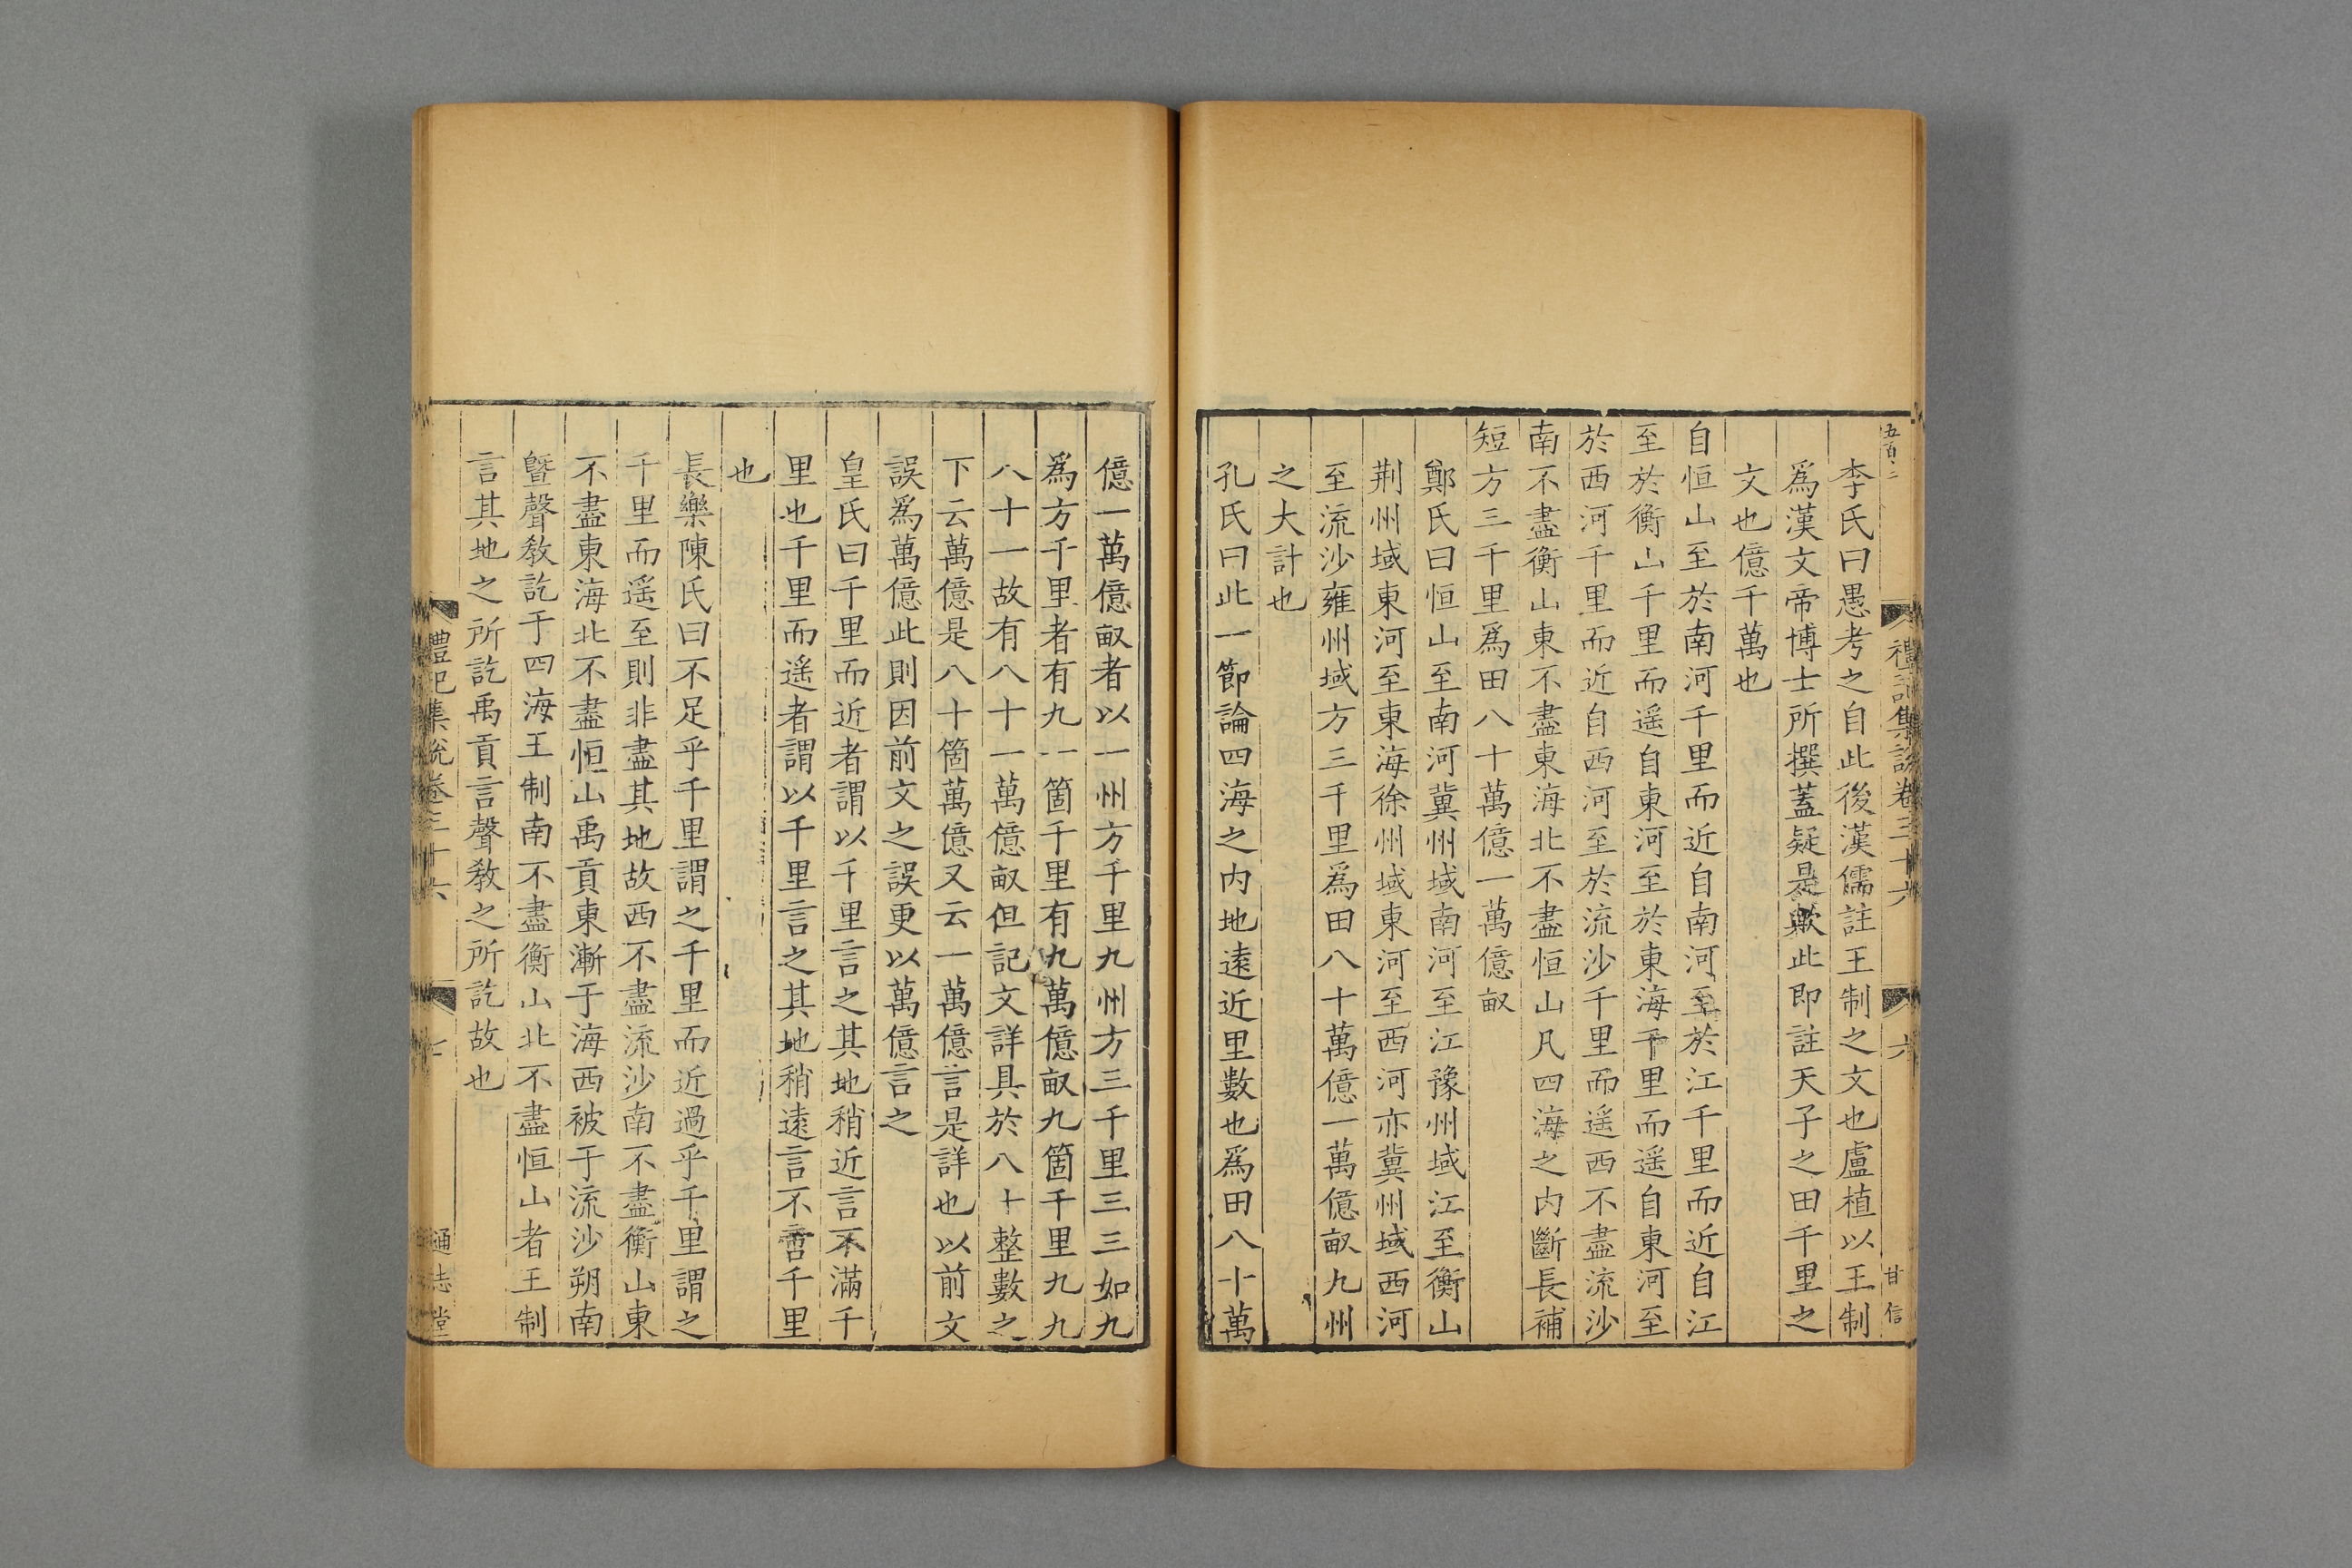 五百
禮記集說卷三十六
六
甘信
李氏曰愚考之自此後漢儒註王制之文也盧植以王制
爲漢文帝博士所撰蓋疑是歟此即註天子之田千里之
文也億千萬也
自恒山至於南河千里而近自南河至於江千里而近自江
至於衡山千里而遥自東河至於東海千里而遥自東河至
於西河千里而近自西河至於流沙千里而遥西不盡流沙
南不盡衡山東不盡東海北不盡恒山凡四海之内斷長補
短方三千里爲田八十萬億一萬億畝
鄭氏曰恒山至南河冀州域南河至江豫州域江至衡山
荆州域東河至東海徐州域東河至西河亦冀州域西河
至流沙雍州域方三千里爲田八十萬億一萬億畝九州
之大計也
孔氏曰此一節論四海之内地逺近里數也爲田八十萬
億一萬億畝者以一州方千里九州方三千里三三如九
爲方千里者有九一箇千里有九萬億畝九箇千里九九
八十一故有八十一萬億畝但記文詳具於八十整數之
下云萬億是八十箇萬億又云一萬億言是詳也以前文
誤爲萬億此則因前文之誤更以萬億言之
皇氏曰千里而近者謂以千里言之其地稍近言不滿千
里也千里而遥者謂以千里言之其地稍逺言不啻千里
也
長樂陳氏曰不足乎千里謂之千里而近過乎千里謂之
千里而遥至則非盡其地故西不盡流沙南不盡衡山東
不盡東海北不盡恒山禹貢東漸于海西被于流沙朔南
曁聲敎訖于四海王制南不盡衡山北不盡恒山者王制
言其地之所訖禹貢言聲敎之所訖故也
禮記集說卷三十六
七
通志堂